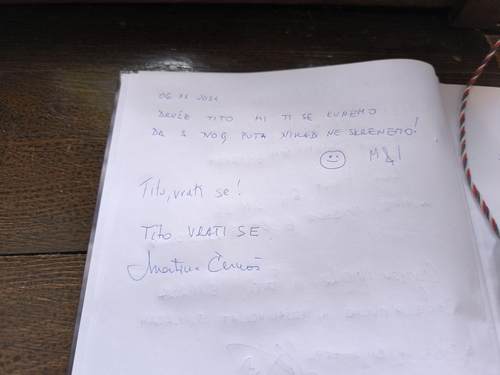 DRUŽE TITO MI TI SE KUNEMO
DA S TVOG PUTA NIKAD NE SKRENEMO!
M & I
Tito, vrati se!
TITO VRATI SE
Martina